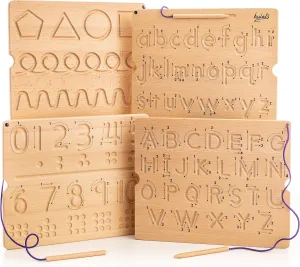 abcdefghi
jklmnopqr
stuvwxyz
01234
678910
ABCDEFG
HIJKLMN
OPQRSTU
VWXYZ